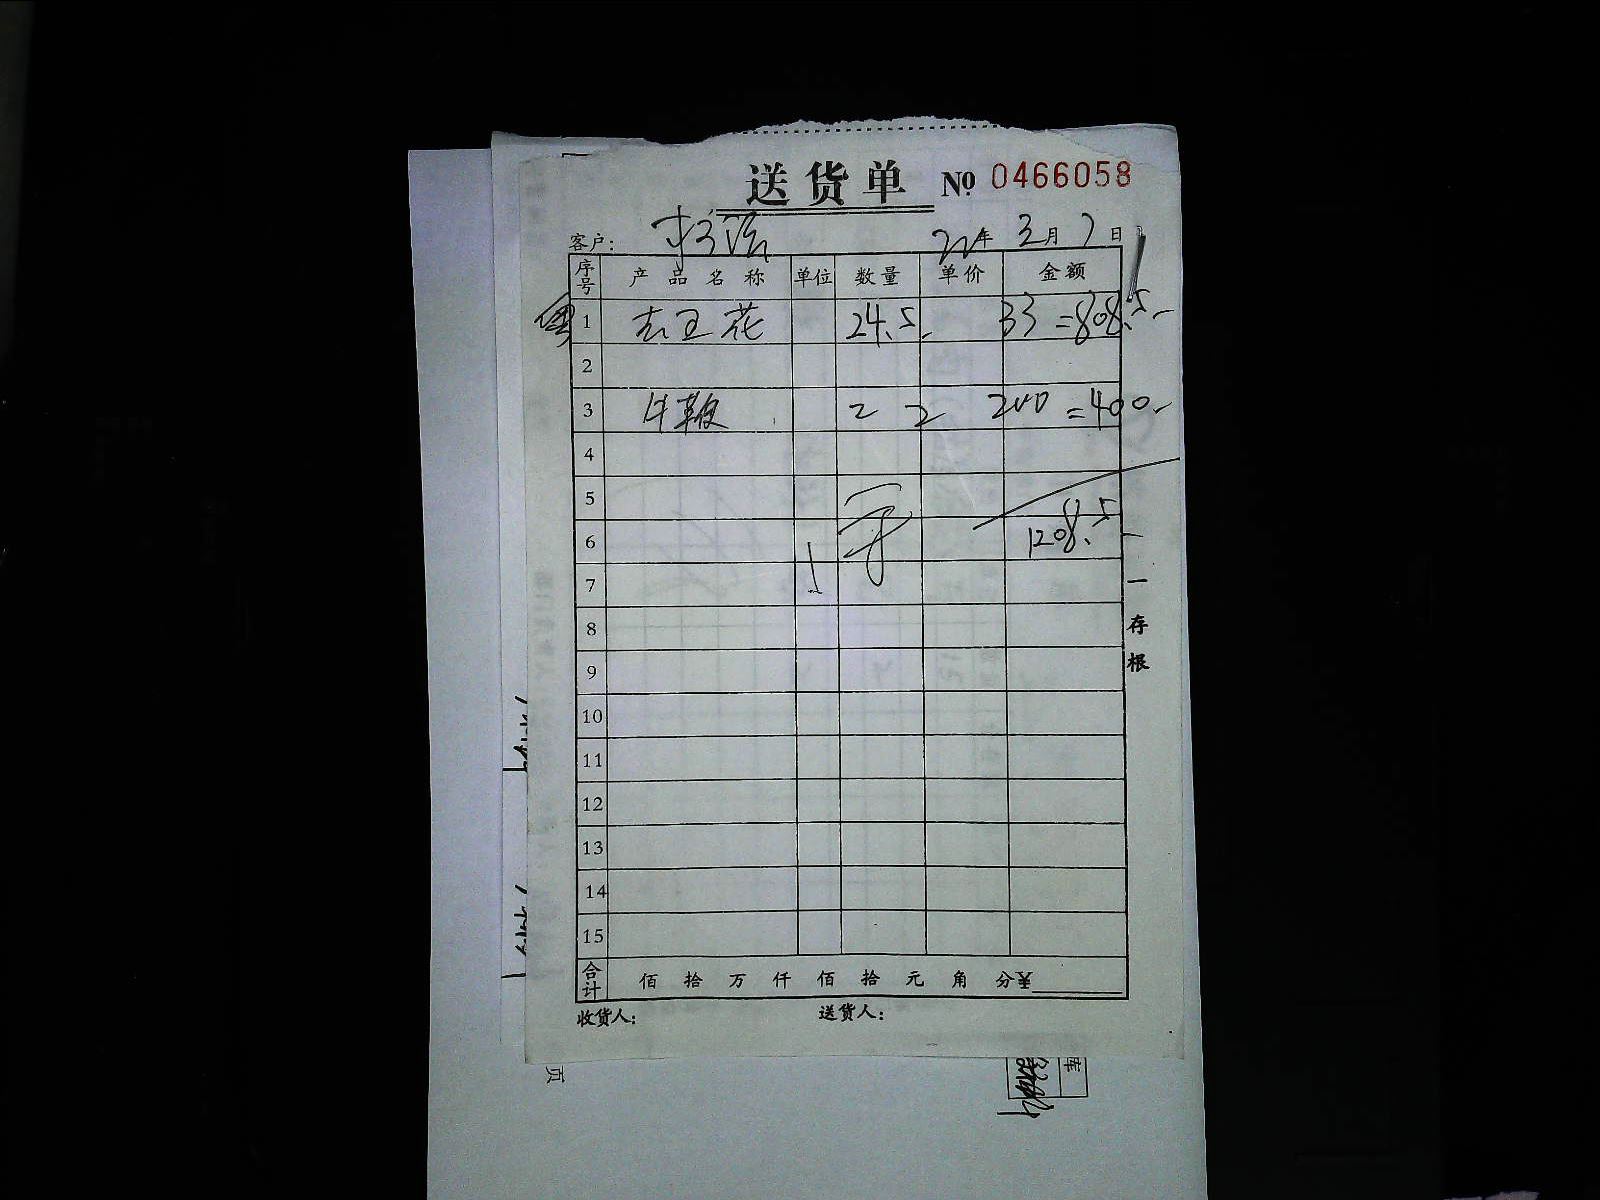 送货单 No 0466058
客户: 杨浩 22年 3月 7日
序号 产品名称 单位 数量 单价 金额
1 去王花 24.5. 33 = 808.5-
2
3 牛鞭 2 2 200 = 400-
4
5
6 1208.5-
7
8
9
10
11
12
13
14
15
合计 佰 拾 万 仟 佰 拾 元 角 分¥
收货人: 送货人:
一存根
页
库